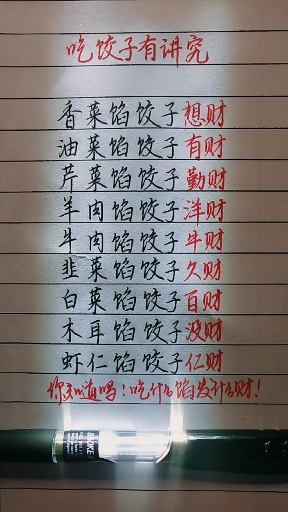 吃饺子有讲究
香菜馅饺子想财
油菜馅饺子有财
芹菜馅饺子勤财
羊肉馅饺子洋财
牛肉馅饺子牛财
韭菜馅饺子久财
白菜馅饺子百财
木耳馅饺子没财
虾仁馅饺子仁财
你知道吗！吃什么馅发什么财！